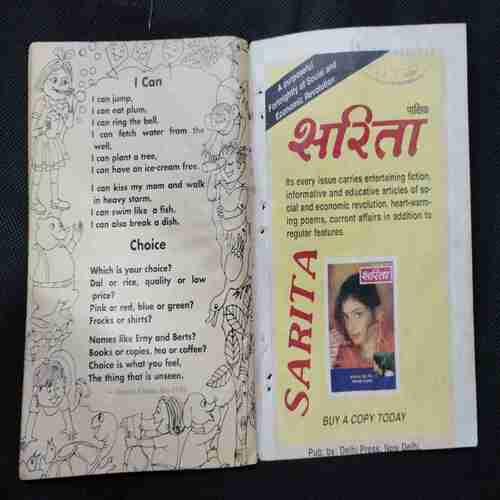 I Can
I can jump,
I can eat plum,
I can ring the bell,
I can fetch water from the
well,
I can plant a tree,
I can have an ice-cream free.
I can kiss my mom and walk
in heavy storm.
I can swim like a fish,
I can also break a dish.
Choice
Which is your choice?
Dal or rice, quality or low
price?
Pink or red, blue or green?
Frocks or shirts?
Names like Erny and Berts?
Books or copies, tea or coffee?
Choice is what you feel,
The thing that is unseen.
A purposeful
Fortnightly of Social and
Economic Revolution
पाक्षिक
सरिता
Its every issue carries entertaining fiction,
informative and educative articles of so-
cial and economic revolution, heart-warm-
ing poems, current affairs in addition to
regular features.
SARITA
सरिता
BUY A COPY TODAY
Pub. by: Delhi Press, New Delhi